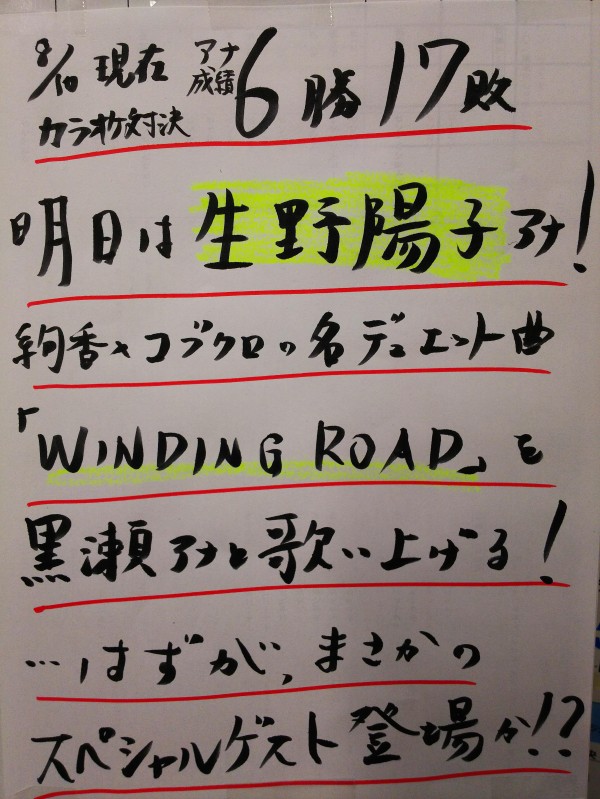 8/10 現在 アナ成績 6勝17敗
カラオケ対決
明日は生野陽子アナ!
絢香×コブクロの名デュエット曲
「WINDING ROAD」を
黒瀬アナと歌い上げる!
…はずが、まさかの
スペシャルゲスト登場か!?